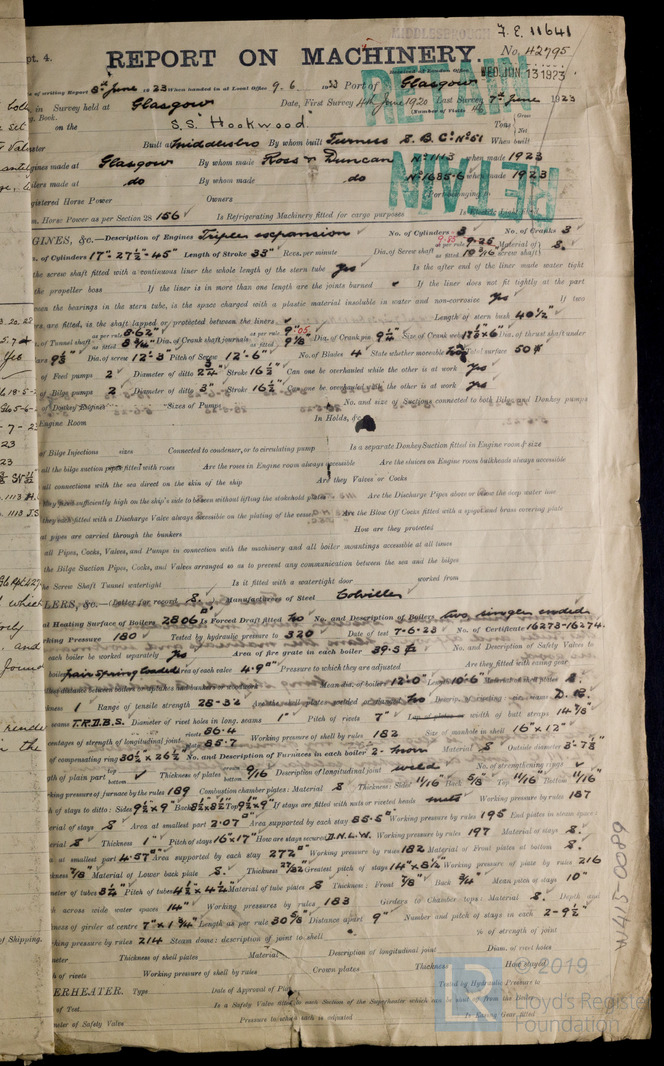 MIDDLESBROUGH F.E. 11641
pt. 4. REPORT ON MACHINERY. No. 42795
WED. JUN 13 1923
of writing Report 8th June 1923 When handed in at Local Office 9.6.1923 Port of Glasgow
in Survey held at Glasgow Date, First Survey 4th June 1920 Last Survey 7th June 1923
g. Book. (Number of Visits
on the S.S. Hookwood Tons Gross Net
Built at Middlesbro By whom built Turners S.B. Co No 51 When built
made at Glasgow By whom made Ross & Duncan No 1113 when made 1923
made at do By whom made do No 1685-6 when made 1923
RETAIN
RETAIN
gistered Horse Power Owners Port belonging
Horse Power as per Section 28 156 Is Refrigerating Machinery fitted for cargo purposes
GINES, &c.—Description of Engines Triple expansion No. of Cylinders 3 No. of Cranks 3
of Cylinders 17"-27½-45" Length of Stroke 33" Revs. per minute Dia. of Screw shaft as per rule 9.25 Material of screw shaft S.
the screw shaft fitted with a continuous liner the whole length of the stern tube Yes Is the after end of the liner made water tight
the propeller boss If the liner is in more than one length are the joints burned If the liner does not fit tightly at the part
een the bearings in the stern tube, is the space charged with a plastic material insoluble in water and non-corrosive Yes If two
ers are fitted, is the shaft lapped or protected between the liners Length of stern bush 40½"
of Tunnel shaft as per rule 8.62" as fitted 8¾" Dia. of Crank shaft journals as per rule 9.05" as fitted 9⅛" Dia. of Crank pin 9¼" Size of Crank webs 17½x6" Dia. of thrust shaft under
ars 9⅛" Dia. of screw 12'-3" Pitch of Screw 12'-6" No. of Blades 4 State whether moveable Total surface 50
of Feed pumps 2 Diameter of ditto 2¾" Stroke 16½" Can one be overhauled while the other is at work Yes
of Bilge pumps 2 Diameter of ditto 3" Stroke 16½" Can one be overhauled while the other is at work Yes
of Donkey Engines Sizes of Pumps No. and size of Suctions connected to both Bilge and Donkey pumps
Engine Room In Holds, &c.
of Bilge Injections sizes Connected to condenser, or to circulating pump Is a separate Donkey Suction fitted in Engine room & size
all the bilge suction pipes fitted with roses Are the roses in Engine room always accessible Are the sluices on Engine room bulkheads always accessible
all connections with the sea direct on the skin of the ship Are they Valves or Cocks
they fixed sufficiently high on the ship's side to be seen without lifting the stokehold plates Are the Discharge Pipes above or below the deep water line
they each fitted with a Discharge Valve always accessible on the plating of the vessel Are the Blow Off Cocks fitted with a spigot and brass covering plate
at pipes are carried through the bunkers How are they protected
all Pipes, Cocks, Valves, and Pumps in connection with the machinery and all boiler mountings accessible at all times
the Bilge Suction Pipes, Cocks, and Valves arranged so as to prevent any communication between the sea and the bilges
the Screw Shaft Tunnel watertight Is it fitted with a watertight door worked from
LERS, &c.—(Letter for record S.) Manufacturers of Steel Colvilles
al Heating Surface of Boilers 2806 Is Forced Draft fitted No No. and Description of Boilers two single ended
rking Pressure 180 Tested by hydraulic pressure to 320 Date of test 7-6-23 No. of Certificate 16273-16274
each boiler be worked separately Yes Area of fire grate in each boiler 39.5 No. and Description of Safety Valves to
boiler pair spring loaded Area of each valve 4.9" Pressure to which they are adjusted Are they fitted with easing gear
Mean dia. of boilers 12'-0" Length 10'-6" Material of shell plates S.
kness 1 Range of tensile strength 28-32 Are the shell plates welded or flanged No Descrip. of riveting: cir. seams D.R.
seams T.R.D.B.S. Diameter of rivet holes in long. seams 1" Pitch of rivets 7" Lap of plates or width of butt straps 14⅞"
centages of strength of longitudinal joint rivets 86.4 plate 85.7 Working pressure of shell by rules 182 Size of manhole in shell 16"x12"
of compensating ring 30½x26½ No. and Description of Furnaces in each boiler 2-Morison Material S Outside diameter 3'-7⅞"
gth of plain part top bottom Thickness of plates crown bottom 9/16 Description of longitudinal joint weld No. of strengthening rings
king pressure of furnace by the rules 189 Combustion chamber plates: Material S Thickness: Sides 11/16" Back 5/8" Top 11/16" Bottom 11/16"
of stays to ditto: Sides 9½x9" Back 8½x8½ Top 9½x9" If stays are fitted with nuts or riveted heads nuts Working pressure by rules 187
erial of stays S Area at smallest part 2.07" Area supported by each stay 85.5" Working pressure by rules 195 End plates in steam space:
erial S Thickness 1" Pitch of stays 16"x17" How are stays secured D.N.L.W. Working pressure by rules 197 Material of stays S.
at smallest part 4.57" Area supported by each stay 272" Working pressure by rules 182 Material of Front plates at bottom S.
ckness 7/8" Material of Lower back plate S. Thickness 27/32 Greatest pitch of stays 14"x8½ Working pressure of plate by rules 216
meter of tubes 3¼" Pitch of tubes 4½x4¼ Material of tube plates S Thickness: Front 7/8" Back ¾" Mean pitch of stays 10"
across wide water spaces 14" Working pressures by rules 183 Girders to Chamber tops: Material S. Depth and
kness of girder at centre 7"x1¾" Length as per rule 30⅝ Distance apart 9" Number and pitch of stays in each 2-9½"
king pressure by rules 214 Steam dome: description of joint to shell % of strength of joint
meter Thickness of shell plates Material Description of longitudinal joint Diam. of rivet holes
h of rivets Working pressure of shell by rules Crown plates Thickness How stayed
ERHEATER. Type Date of Approval of Plan Tested by Hydraulic Pressure to
of Test Is a Safety Valve fitted to each Section of the Superheater which can be shut off from the Boiler
meter of Safety Valve Pressure to which each is adjusted Is Easing Gear fitted
W415-0089
of Shipping.
LR © 2019
Lloyd's Register
Foundation